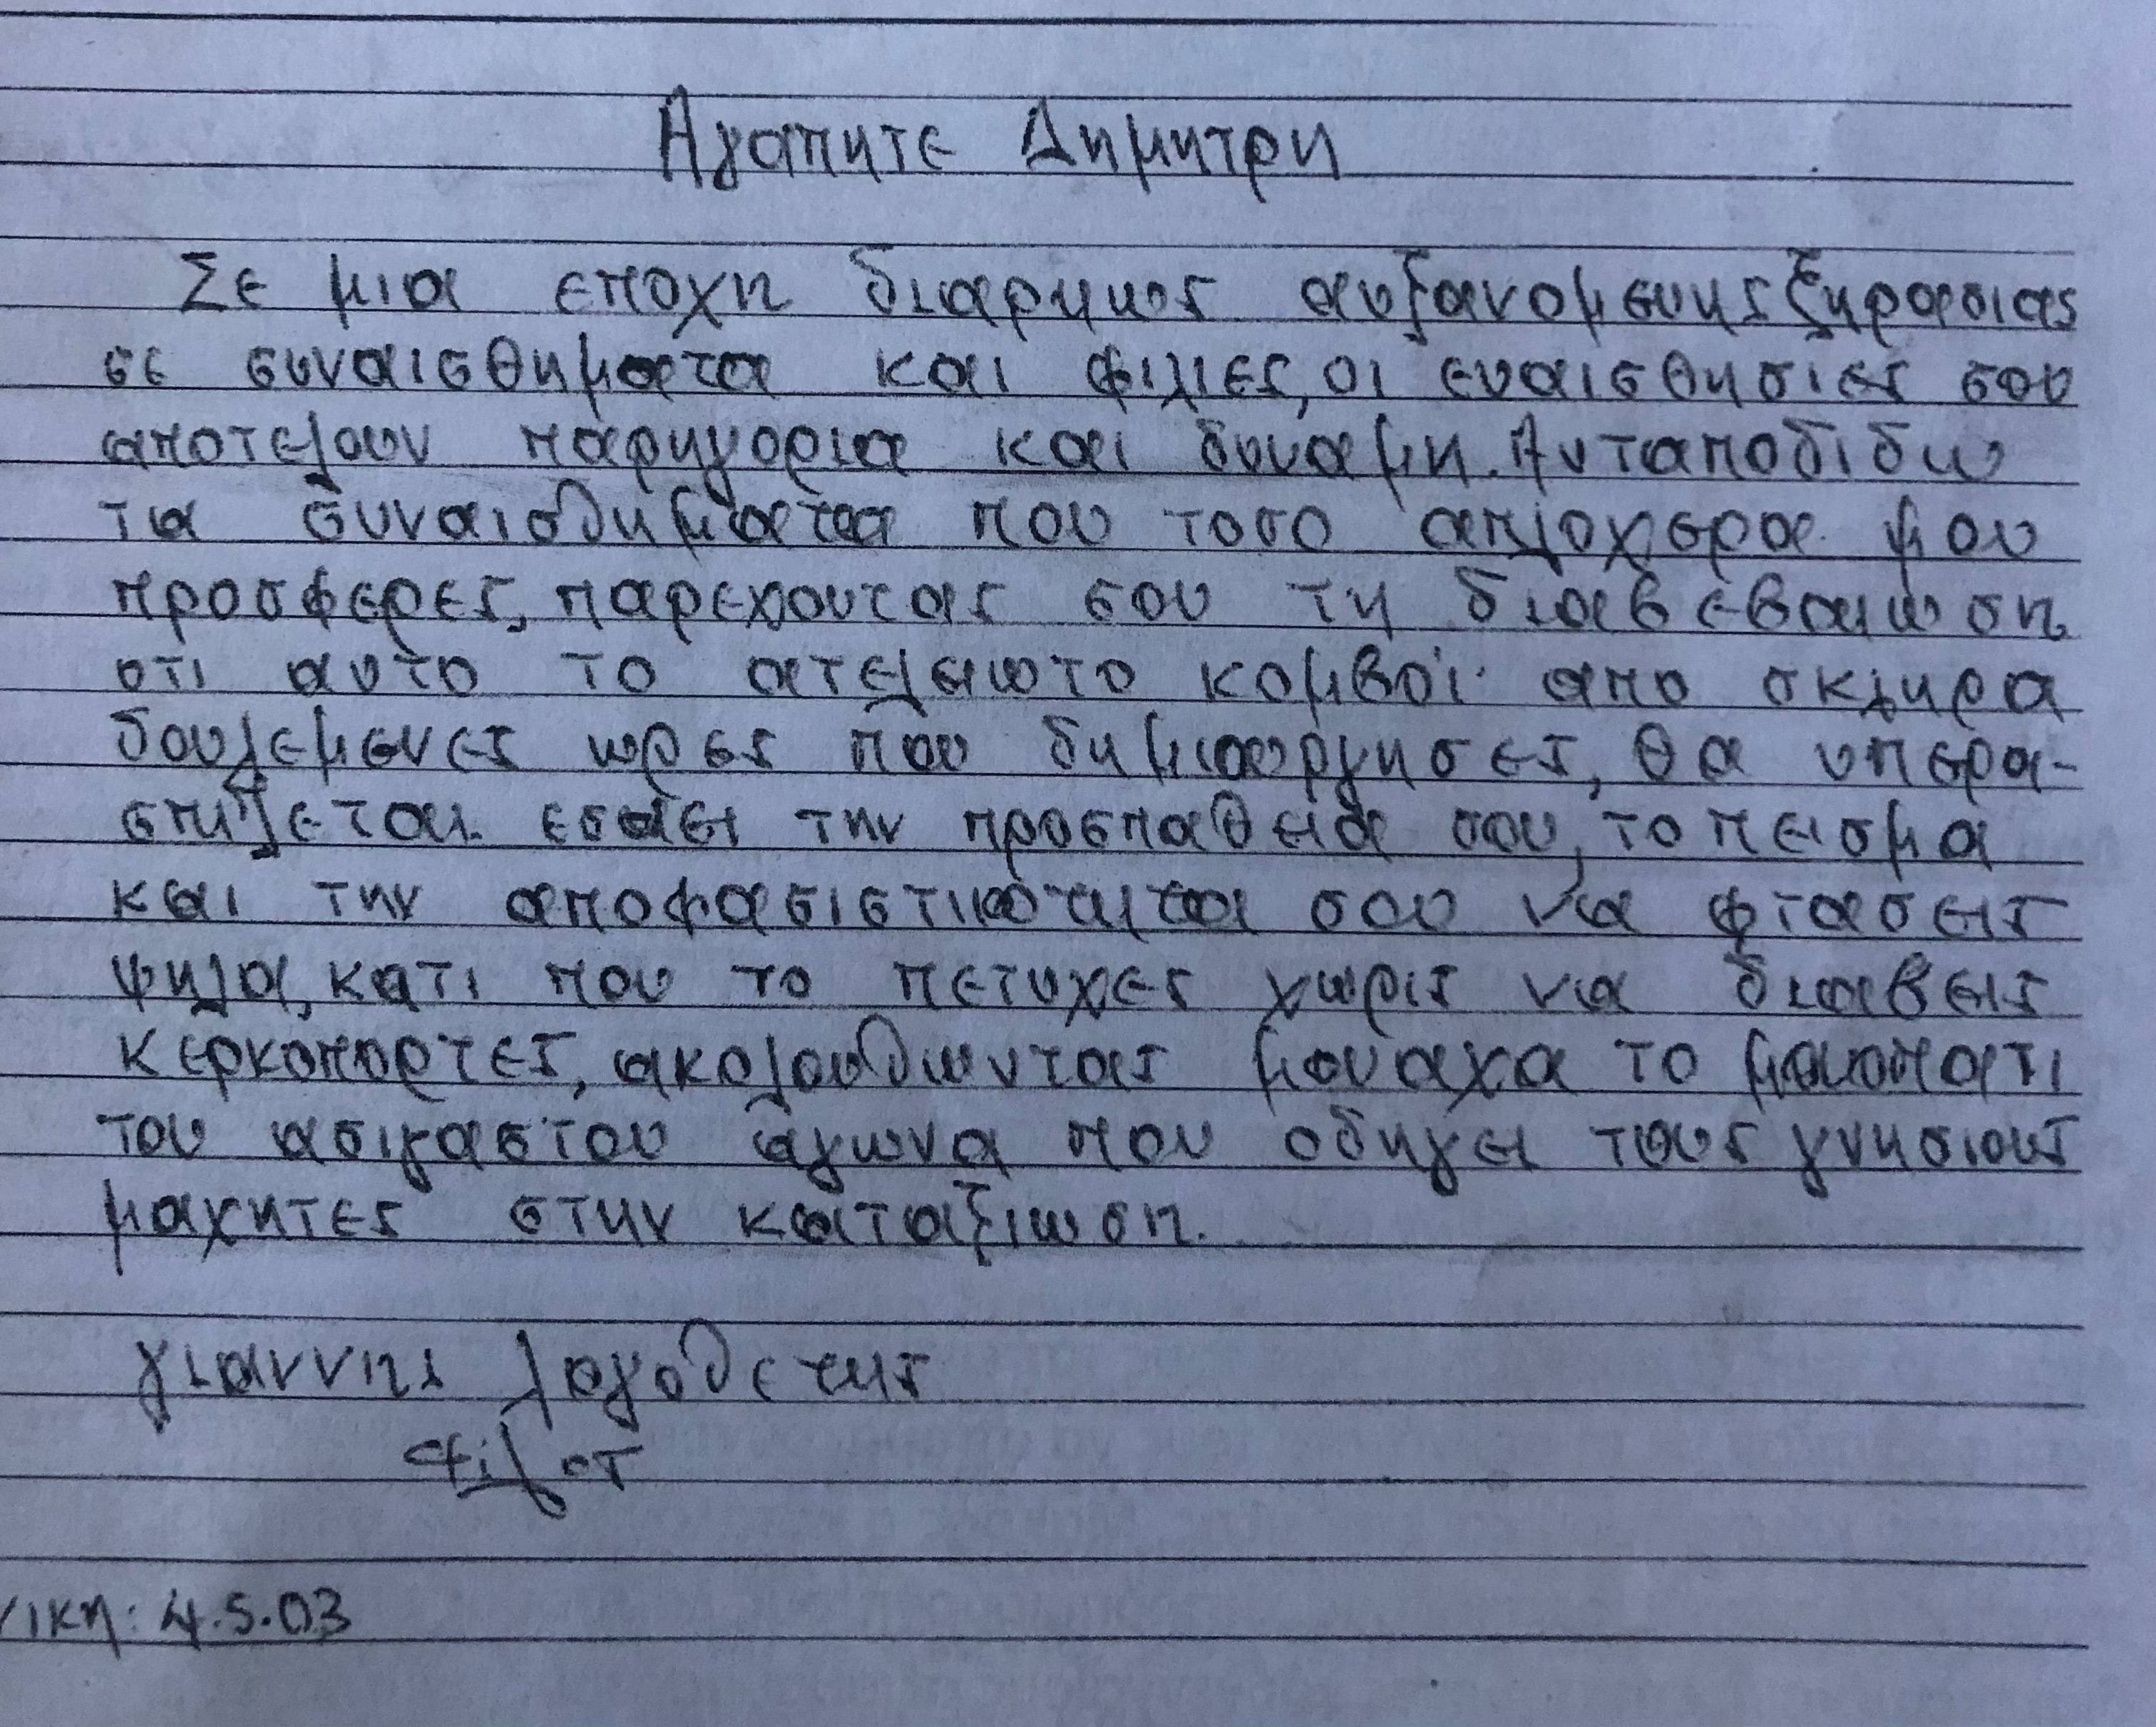 Αγαπητε Δημητρη
Σε μια εποχη διαρκως αυξανομενης ξηρασιας
σε συναισθηματα και φιλιες, οι ευαισθησιες σου
αποτελουν παρηγορια και δυναμη. Ανταποδιδω
τα συναισθηματα που τοσο απλοχερα μου
προσφερες, παρεχοντας σου τη διαβεβαιωση
οτι αυτο το ατελειωτο κομβοϊ απο σκληρα
δουλεμενες ωρες που δημιουργησες, θα υπερα-
σπιζεται εσαει την προσπαθεια σου, το πεισμα
και την αποφασιστικοτητα σου να φτασεις
ψηλα, κατι που το πετυχες χωρις να διαβεις
κερκοπορτες, ακολουθωντας μοναχα το μονοπατι
του ασιγαστου αγωνα που οδηγει τους γνησιους
μαχητες στην καταξιωση.
γιαννης λογοθετης
φιλος
νικη: 4.5.03